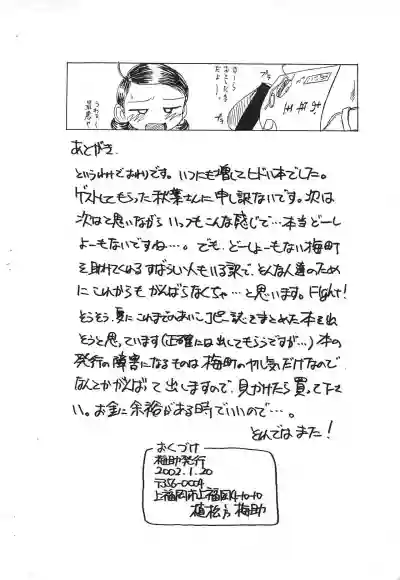 あとがき.
というわけでおわりです。いつにも増してヒドい本でした。
ゲストしてもらった秋葉さんに申し訳ないです。次は
次はて思いながらいっつもこんな感じで…本当どーし
よーもないですね…。でも、どーしよーもない梅町
を助けてくれるすばらしい人もいる訳で、そんな人達のため
にこれからもがんばらなくちゃ…と思います。Fight!
そうそう、夏にこれまでのあいこコピー誌をまとめた本をね
そうと思っています(正確には出してもらうですが…)本の
発行の障害になるものは梅町のヤル気だけなので
なんとかがんばって出しますので、見かけたら買って下さ
い。お金に余裕がある時でいいので…。
とんでは また!
おくづけ
梅助発行
2002.1.20
〒356-0004
上福岡市上福岡4-10-10
植松方 梅助